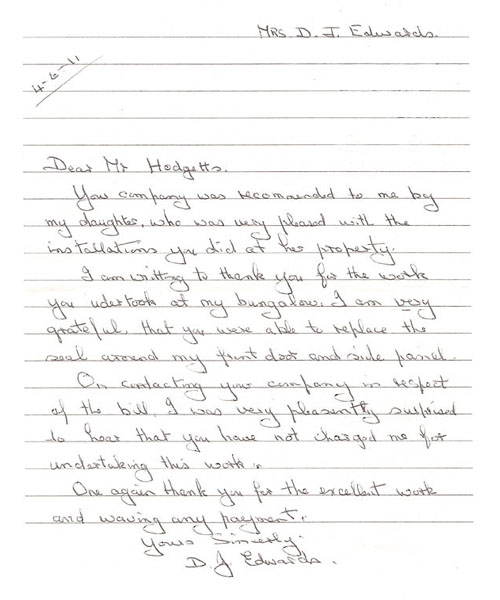 MRS D. J. Edwards.
4-6-11
Dear Mr Hodgetts.
You company was recomended to me by
my daughter, who was very pleased with the
installations you did at her property.
I am writting to thank you for the work
you udertook at my bungalow. I am very
grateful, that you were able to replace the
seal around my front door and side panel.
On contacting your company in respect
of the bill, I was very pleasently suprised
to hear that you have not charged me for
undertaking this work.
One again thank you for the excellent work
and waving any payment.
Yours Sincerly.
D. J. Edwards.